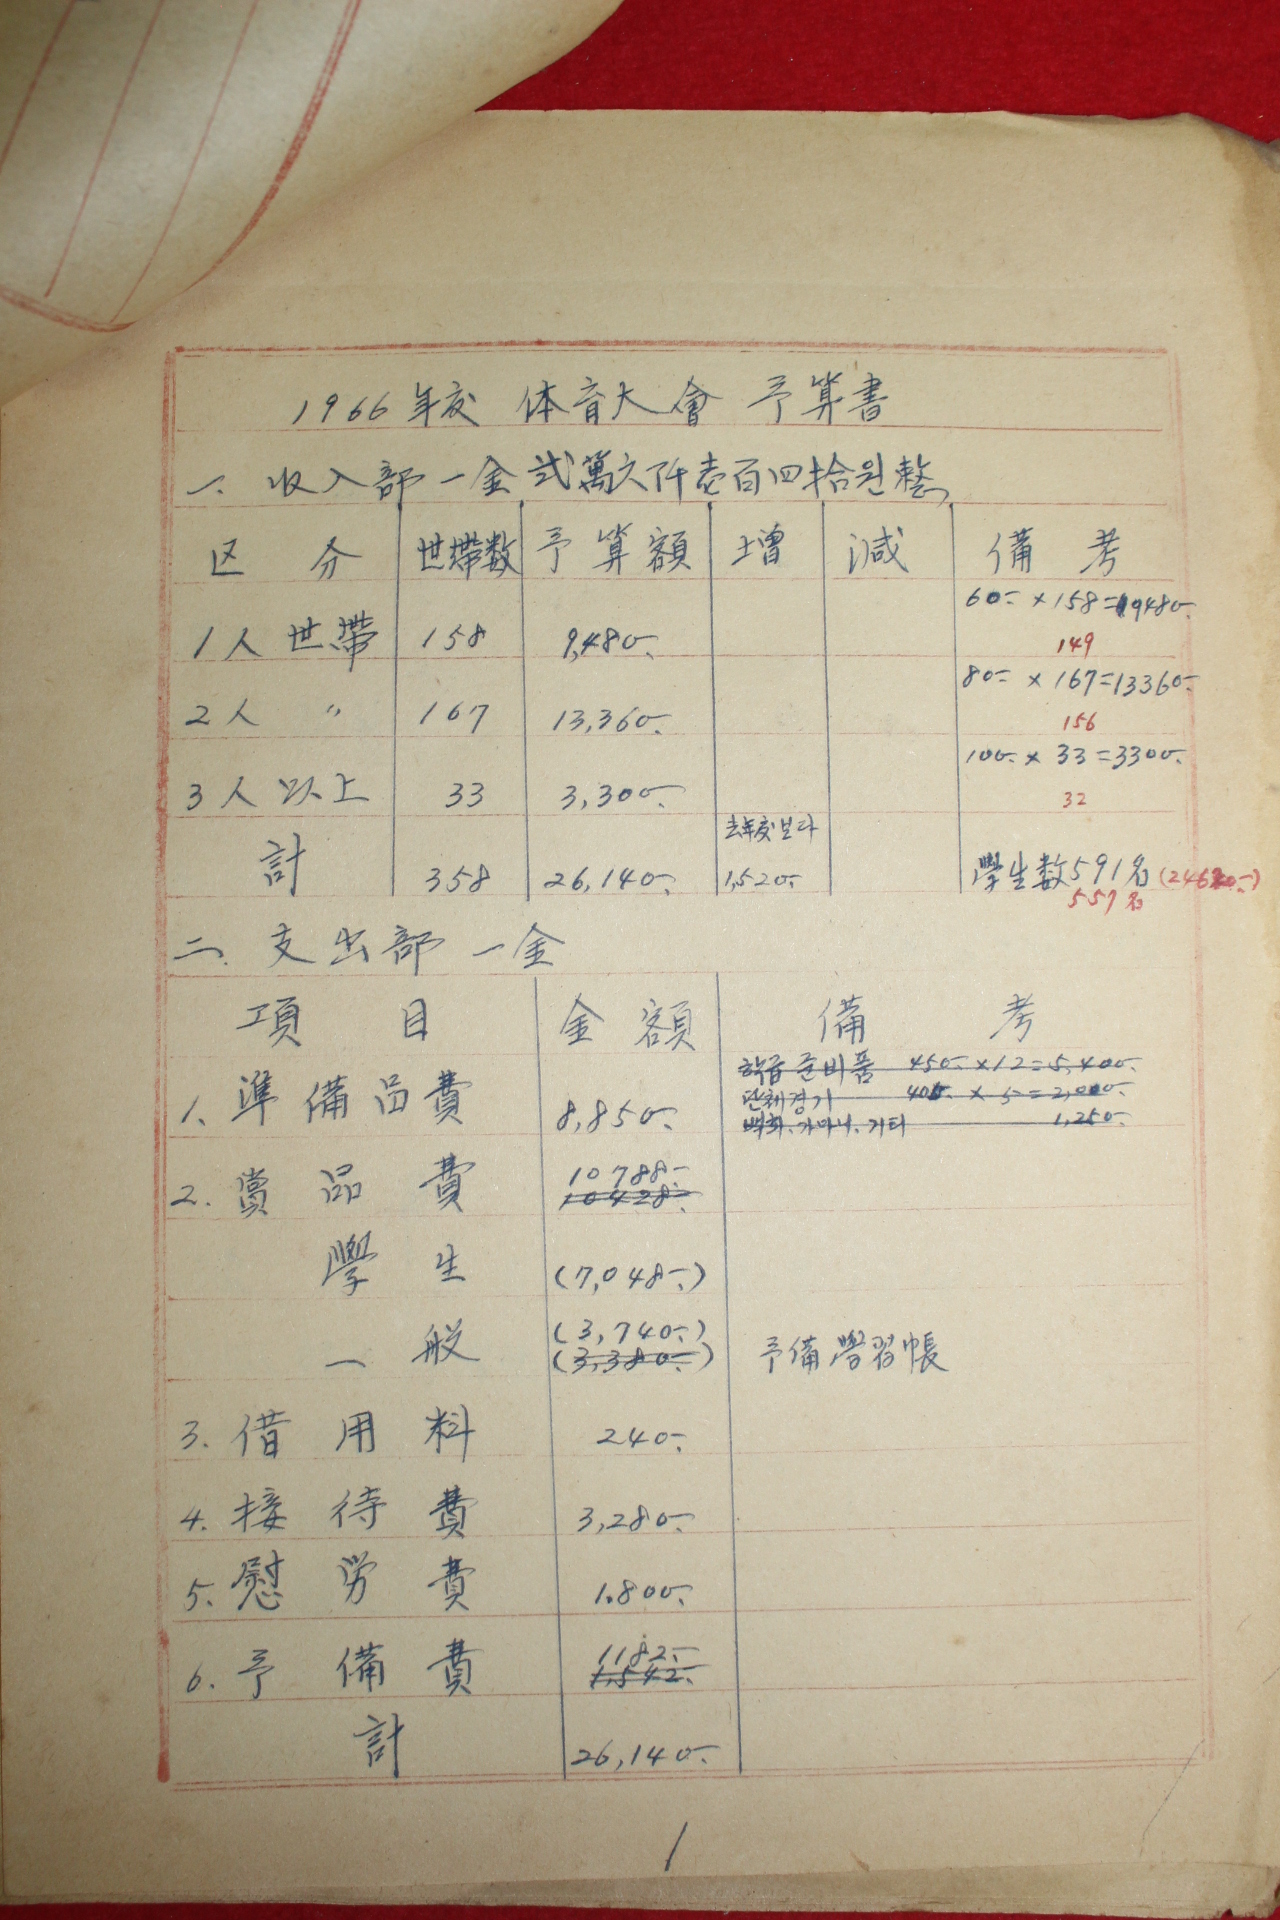 1966 年度 体育大會 予算書
一. 收入部 一金 弐萬六阡壱百四拾원整
区 分 世帶数 予算額 增 減 備考
60- × 158 = 9480-
1人 世帶 158 9,480- 149
80- × 167 = 13360-
2人 〃 167 13,360- 156
100- × 33 = 3300-
3人 以上 33 3,300- 32
去年度보다
計 358 26,140- 1,520- 學生数 591名 
557名
二. 支出部 一金
項 目 金額 備 考
학급 준비품 450- × 12 = 5,400-
단체경기 400- × 5 = 2,000-
1. 準備品費 8,850- 백회. 가마니. 기타 1,250-
10788-
2. 賞品費 10428-
學生 (7,048-)
(3,740-)
一般 (3,380-) 予備學習帳
3. 借用料 240-
4. 接待費 3,280-
5. 慰労費 1.800-
1182-
6. 予備費 1,542-
計 26,140-
1